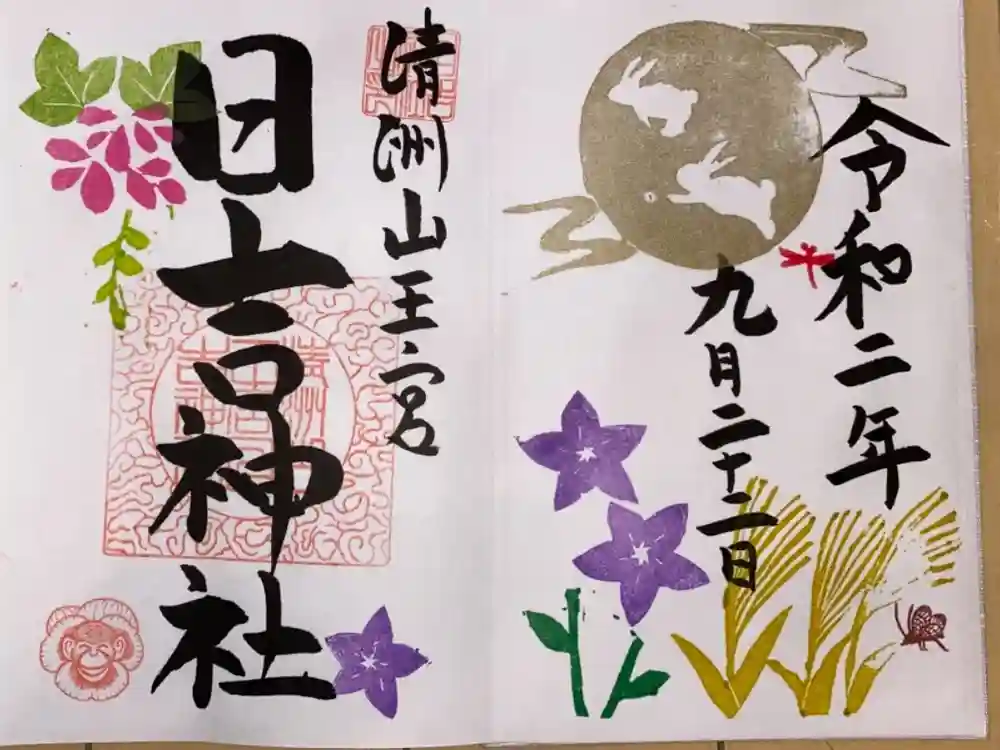 令和二年
九月二十二日
清洲山王宮
日吉神社